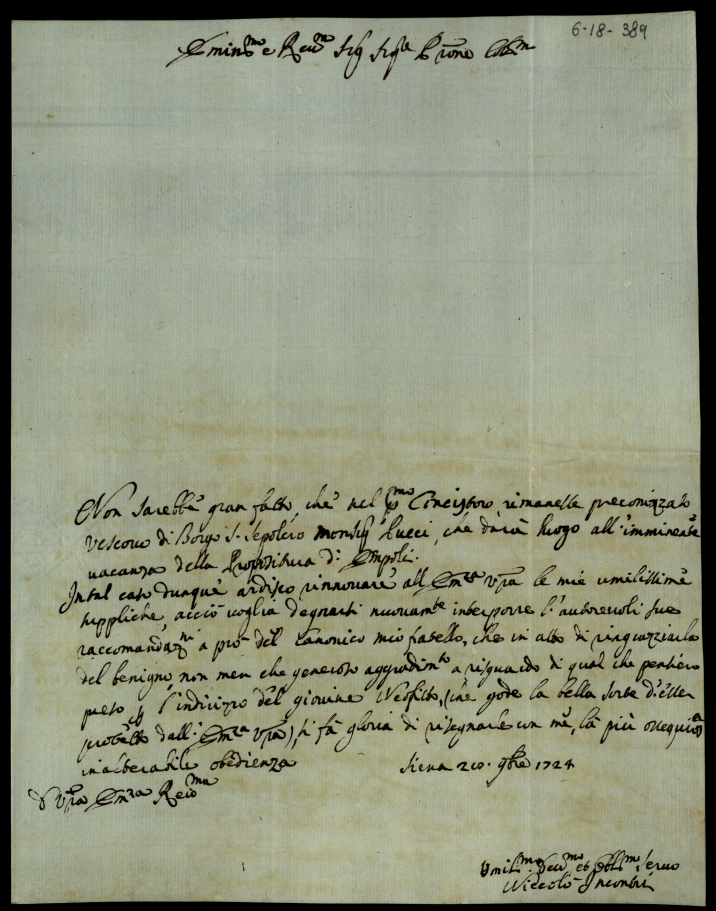 6-18-389
Emin.mo e Rev.mo Sig Sig.re P.rone Col.mo
Non sarebbe gran fatto, che nel p.mo Concistoro rimanesse preconizzato
Vescovo di Borgo S. Sepolcro Monsig.r Lucci, che darà luogo all'imminente
vacanza della Propositura d'Empoli.
In tal caso dunque ardisco rinnovare all'Em.za V.ra le mie umilissime
suppliche, acciò voglia degnarsi nuovam.te interporre l'autorevoli sue
raccomandaz.ni a prò del Canonico mio fratello, che in atto di ringraziarla
del benigno non men che generoso aggradim.to a risguardo di qual che pensiero
preso p l'indirizzo del giovine Neofito, (che gode la bella sorte d'esser
protetto dall'Em.za V.ra), si fà gloria di risegnarle con me, la più ossequiosa
inalterabile obbedienza
Siena 20. 9bre 1724
D V.ra Em.za Rev.ma
Umil.mo Dev.mo et Obbl.mo Servo
Niccolò Incontri